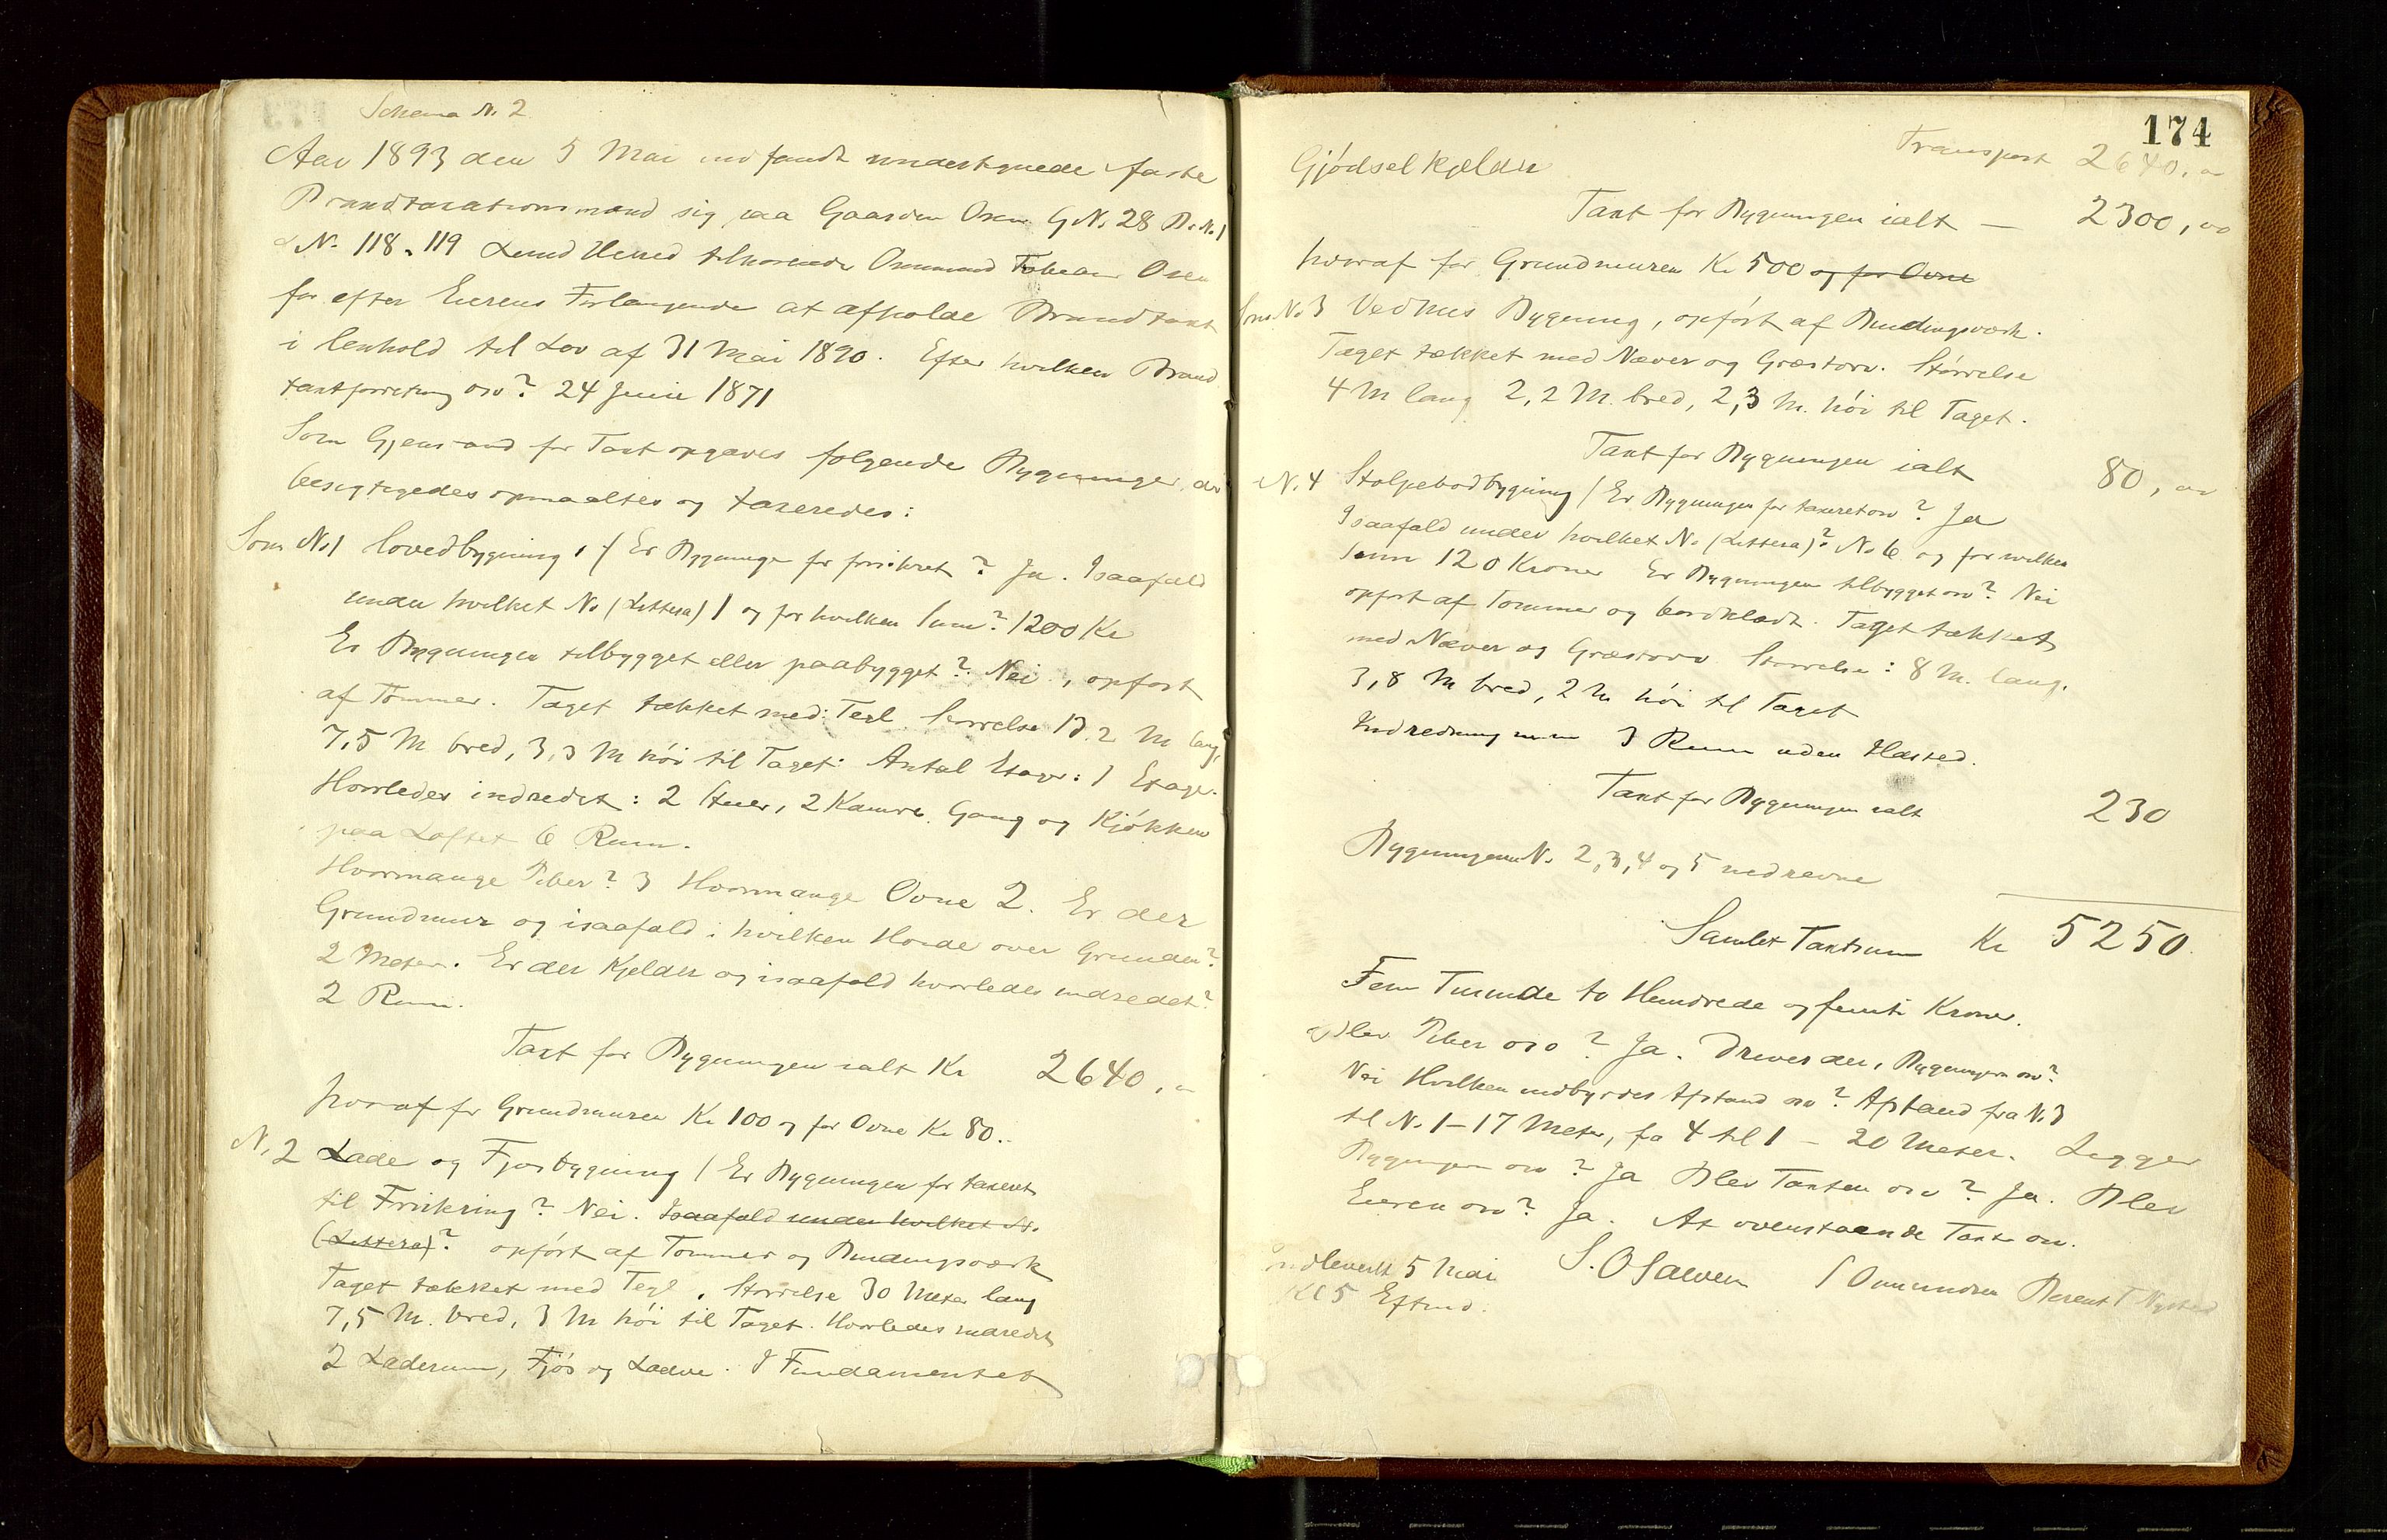 Schema N. 2
Aar 1893 den 5 Mai indfandt undertegnede faste
Brandtaxationsmænd sig paa Gaarden Osen G.N. 28 B.N. 1
L.N. 118 - 119 Lund Herred tilhørende Osmund Tobias Osen
for efter Eierens Forlangende at afholde Brandtaxt
i Henhold til Lov af 31 Mai 1890. Efter hvilken Brand
taxtforretning osv? 24 Juni 1871
Som Gjenstand for Taxt opgaves følgende Bygninger, der
besigtigedes opmaaltes og taxeredes:
Som No 1 Hovedbygning, / Er Bygningen før forsikret? Ja. Isaafald
under hvilket No (Littera) 1 og for hvilken Sum? 1200 Kr
Er Bygningen tilbygget eller paabygget? Nei, opført
af Tømmer. Taget tækket med: Tegl. Størrelse 13.2 M lang,
7,5 M bred, 3,3 M høi til Taget. Antal Etager: 1 Etage.
Hvorledes indredet: 2 Stuer, 2 Kamre, Gang og Kjøkken
paa Loftet 6 Rum.
Hvormange Piber? 3 Hvormange Ovne 2. Er der
Grundmur og isaafald i hvilken Høide over Grunden?
2 Meter. Er der Kjelder og isaafald hvorledes indredet?
2 Rum.
Taxt for Bygningen ialt Kr 2640,"
hvoraf for Grundmuren Kr 100 og for Ovne Kr 80.
N. 2 Lade og Fjøsbygning / Er Bygningen før taxeret
til Forsikring? Nei. Isaafald under hvilket N.
(Littera)? opført af Tømmer og Bindingsværk
Taget tækket med Tegl. Størrelse 30 Meter lang
7,5 M. bred, 3 M høi til Taget. Hvorledes indredet
2 Laderum, Fjøs og Ladve. I Fundamentet
174
Transport 2640,"
Gjødselkjelder
Taxt for Bygningen ialt — 2300,00
hvoraf for Grundmuren Kr 500 og for Ovne
Som No 3 Vedhus Bygning, opført af Bindingsværk.
Taget tækket med Næver og Græstorv. Størrelse
4 M lang 2,2 M. bred, 2,3 M. høi til Taget.
Taxt for Bygningen ialt 80,00
N. 4 Stolpebodbygning / Er Bygningen før taxeret osv? Ja
Isaafald under hvilket No (Littera)? No 6 og for hvilken
Sum 120 Kroner Er Bygningen tilbygget osv? Nei
opført af Tømmer og bordklædt. Taget tækket
med Næver og Græstorv Størrelse: 8 M. lang.
3,8 M bred, 2 M høi til Taget
Indredning 3 Rum uden Ildsted.
Taxt for Bygningen ialt 230
Bygningerne N. 2, 3, 4 og 5 nedrevne
Samlet Taxtsum Kr 5250.
Fem Tusinde to Hundrede og femti Kroner.
Blev Piber osv? Ja. Drives der i Bygningen osv?
Nei Hvilken indbyrdes Afstand osv? Afstand fra N. 3
til N. 1 – 17 Meter, fra 4 til 1 – 20 Meter. Ligger
Bygningen osv? Ja Blev Taxten osv? Ja. Blev
Eieren osv? Ja. At ovenstaaende Taxt osv.
Indleveret 5 Mai S. O Salven S Omundsen Berent T Nysted
Kl 5 Eftmd.